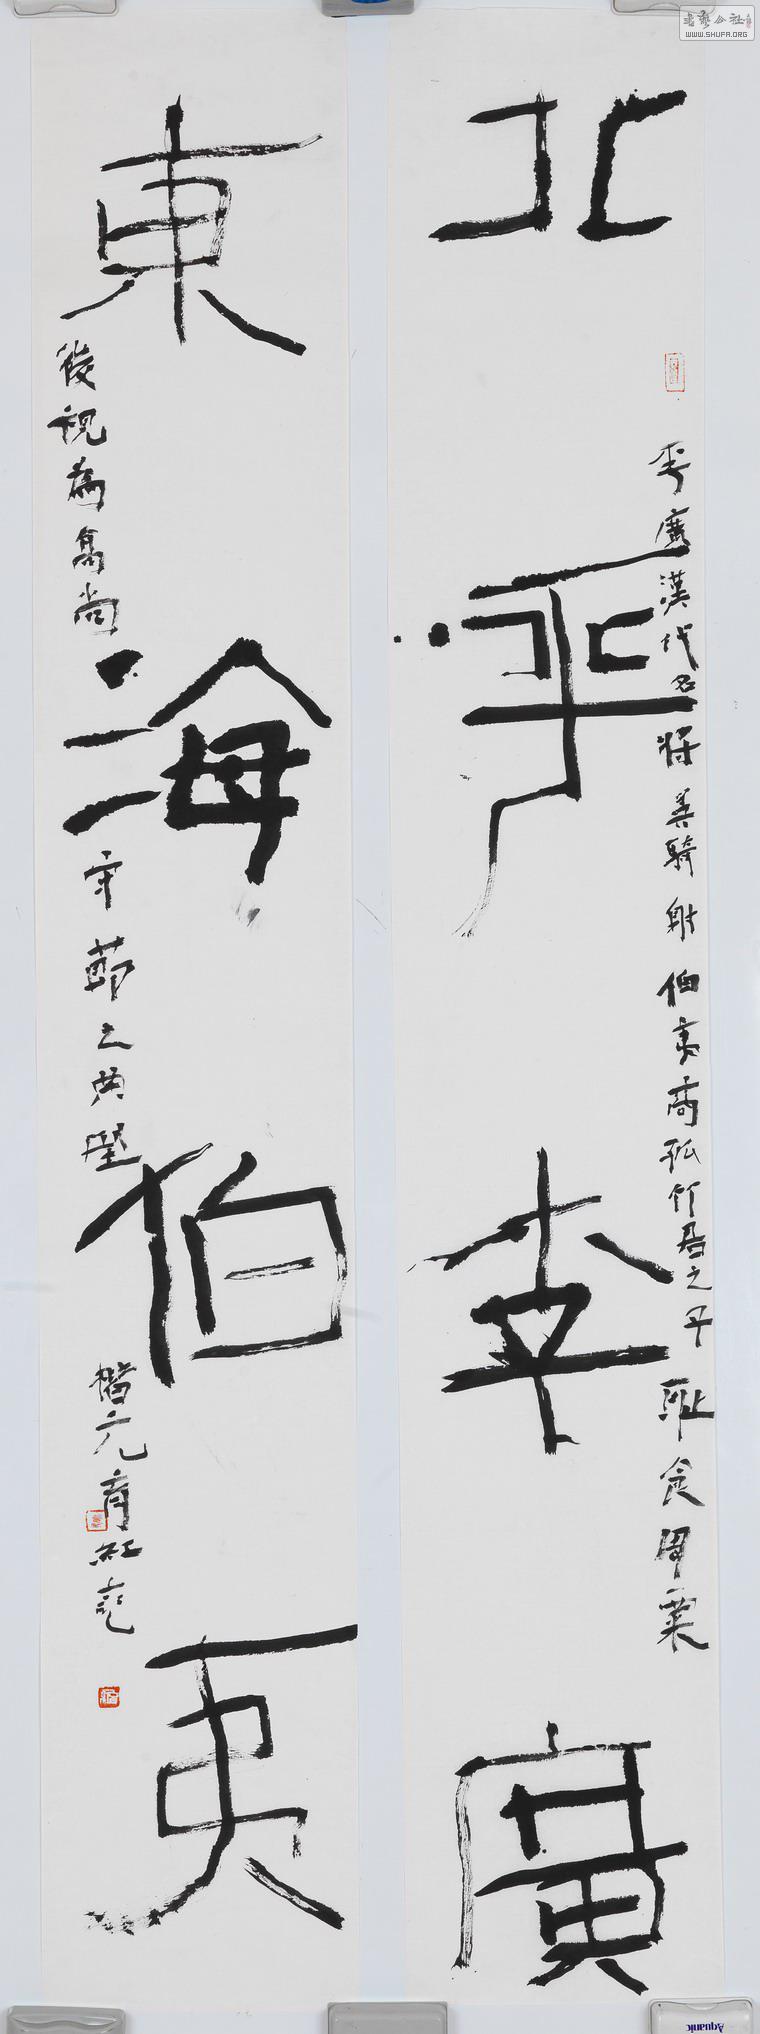 北平李廣
李廣漢代名將善騎射伯夷商孤竹君之子恥食周粟
東海伯夷
後視為高尚守節之典型
楷元育紅亮
書藝公社
WWW.SHUFA.ORG
Aquanic